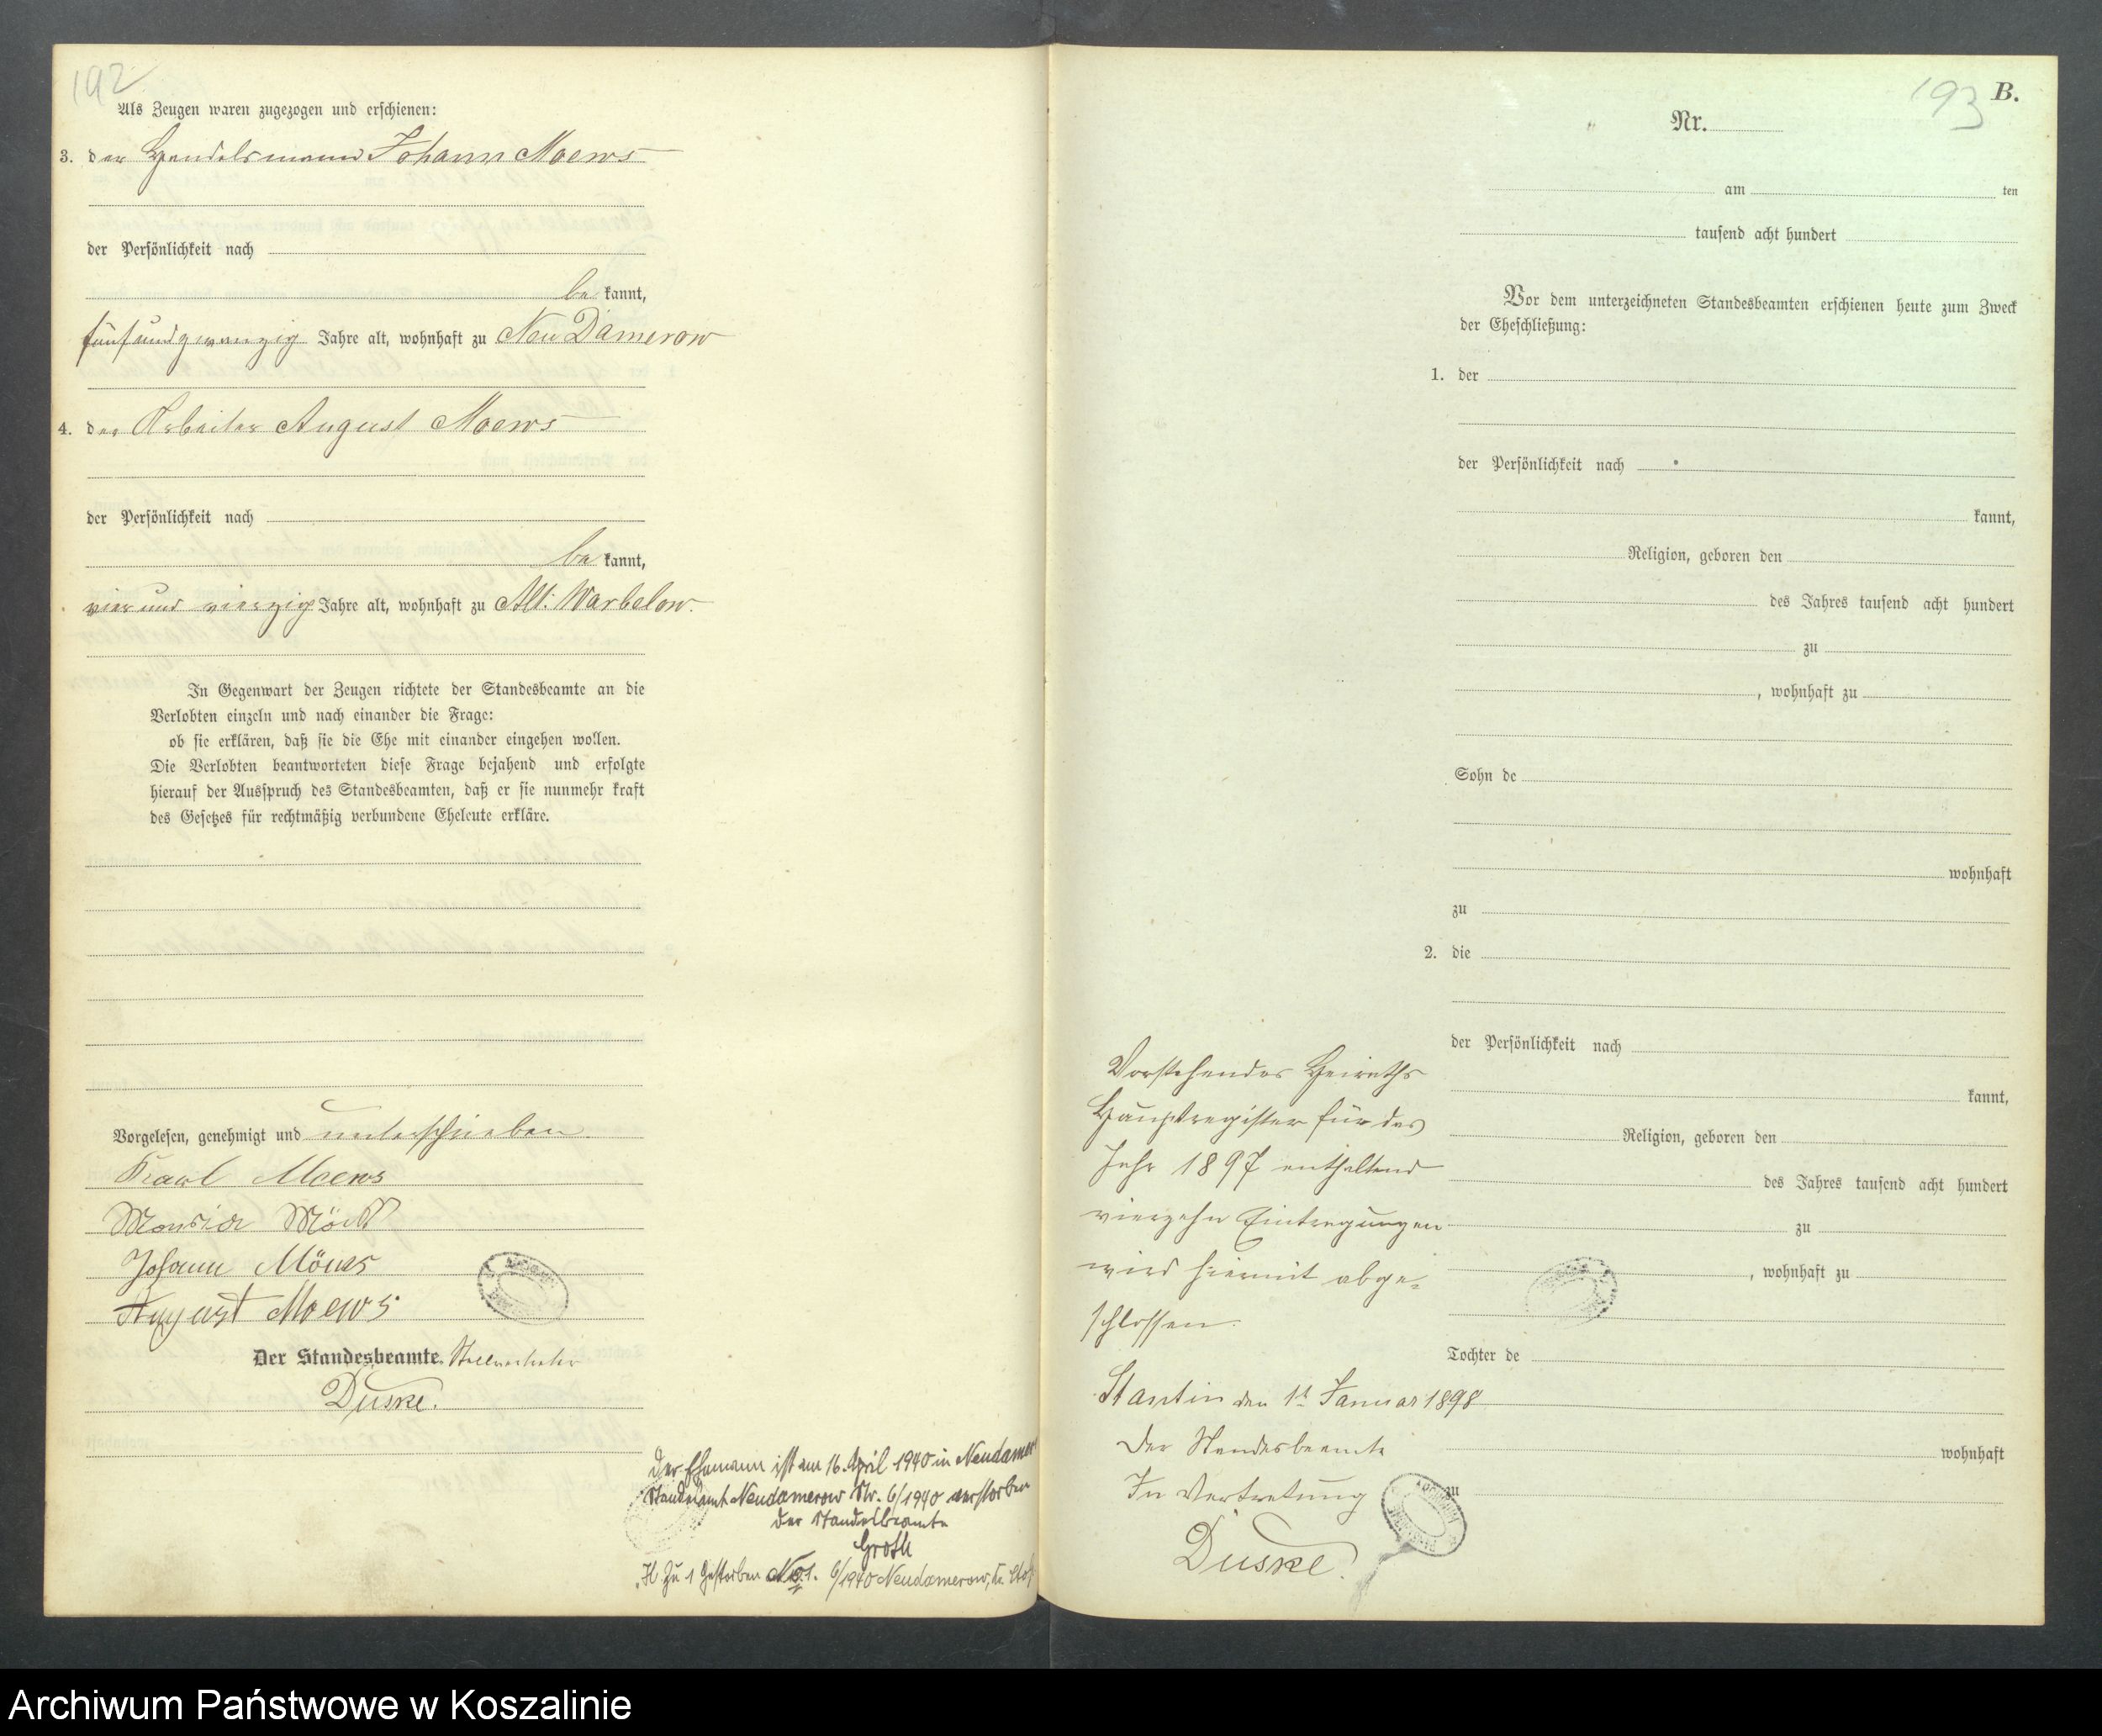 192
Als Zeugen waren zugezogen und erschienen:
3. der Handelsmann Johann Moews
der Persönlichkeit nach
be kannt,
fünfundzwanzig Jahre alt, wohnhaft zu Neu Damerow
4. der Arbeiter August Moews
der Persönlichkeit nach
be kannt,
vier und vierzig Jahre alt, wohnhaft zu Alt: Warbelow.
In Gegenwart der Zeugen richtete der Standesbeamte an die
Verlobten einzeln und nach einander die Frage:
ob sie erklären, daß sie die Ehe mit einander eingehen wollen.
Die Verlobten beantworteten diese Frage bejahend und erfolgte
hierauf der Ausspruch des Standesbeamten, daß er sie nunmehr kraft
des Gesetzes für rechtmäßig verbundene Eheleute erkläre.
Vorgelesen, genehmigt und unterschrieben.
Karl Moews
Johann Möws
August Moews
Der Standesbeamte. Stellvertreter
Duske.
Der Ehemann ist am 16. April 1940 in Neudamerow
Standesamt Neudamerow Nr. 6/1940 verstorben
Der Standesbeamte
Groth
H. Zu 1 Gestorben No. 1. 6/1940 Neudamerow, Kr.
193 B.
Nr.
am ten
tausend acht hundert
Vor dem unterzeichneten Standesbeamten erschienen heute zum Zweck
der Eheschließung:
1. der
der Persönlichkeit nach
kannt,
Religion, geboren den
des Jahres tausend acht hundert
zu
, wohnhaft zu
Sohn de
wohnhaft
zu
2. die
der Persönlichkeit nach
kannt,
Religion, geboren den
des Jahres tausend acht hundert
zu
, wohnhaft zu
Tochter de
wohnhaft
zu
Vorstehendes Heiraths
Hauptregister für das
Jahr 1897 enthaltend
vierzehn Eintragungen
wird hiermit abge-
schlossen.
Stantin den 1t Januar 1898
Der Standesbeamte
In Vertretung
Duske.
Archiwum Państwowe w Koszalinie